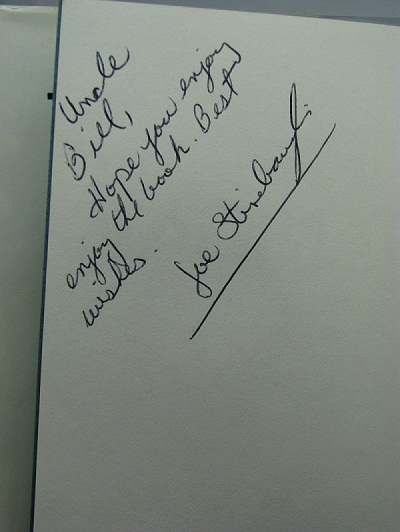 Uncle
Bill,
Hope you enjoy
the book. Best
enjoy
wishes.
Joe Stinebaugh